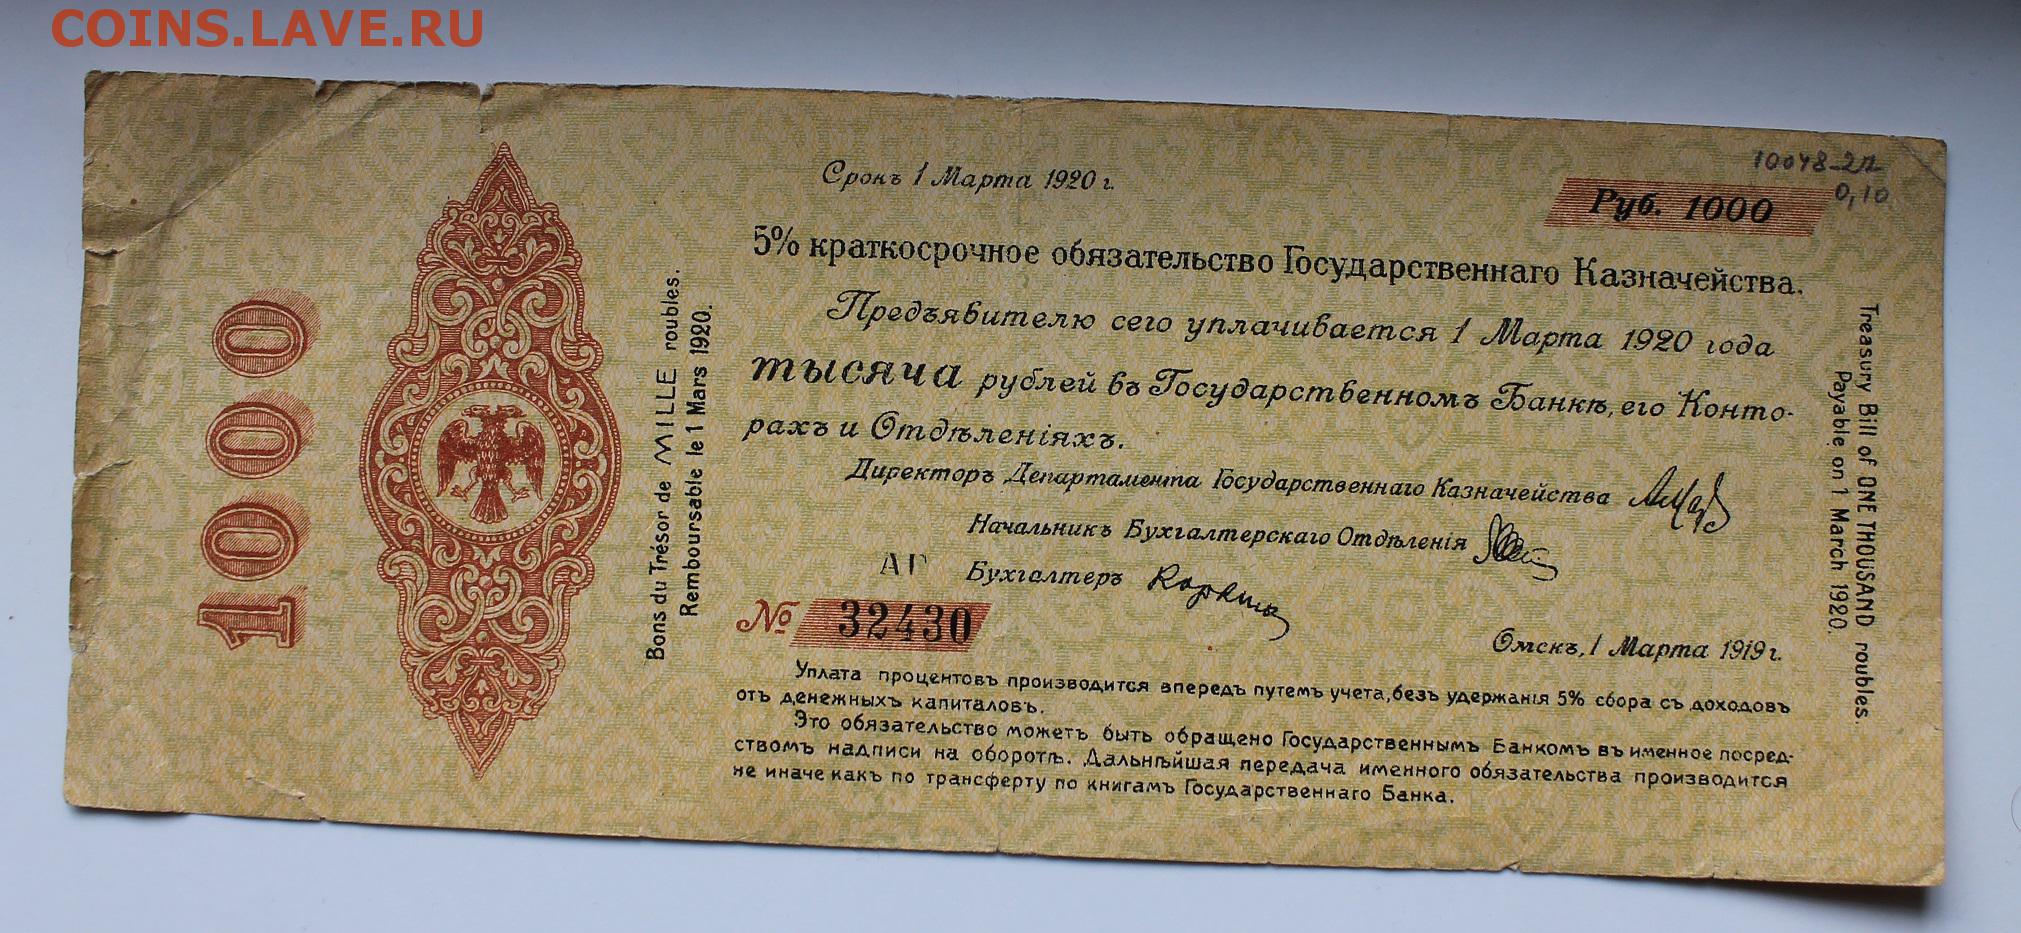 COINS.LAVE.RU
10048-22
0,10
Срокъ 1 Марта 1920 г.
Руб. 1000
5% краткосрочное обязательство Государственнаго Казначейства.
Предъявителю сего уплачивается 1 Марта 1920 года
тысяча рублей въ Государственномъ Банкѣ, его Конто-
рахъ и Отдѣленіяхъ.
Директоръ Департамента Государственнаго Казначейства
Начальникъ Бухгалтерскаго Отдѣленія
АГ Бухгалтеръ
№ 32430
Омскъ, 1 Марта 1919 г.
Уплата процентовъ производится впередъ путемъ учета, безъ удержанія 5% сбора съ доходовъ
отъ денежныхъ капиталовъ.
Это обязательство можетъ быть обращено Государственнымъ Банкомъ въ именное посред-
ствомъ надписи на оборотѣ. Дальнѣйшая передача именного обязательства производится
не иначе какъ по трансферту по книгамъ Государственнаго Банка.
1000
Bons du Trésor de MILLE roubles.
Remboursable le 1 Mars 1920.
Treasury Bill of ONE THOUSAND roubles.
Payable on 1 March 1920.